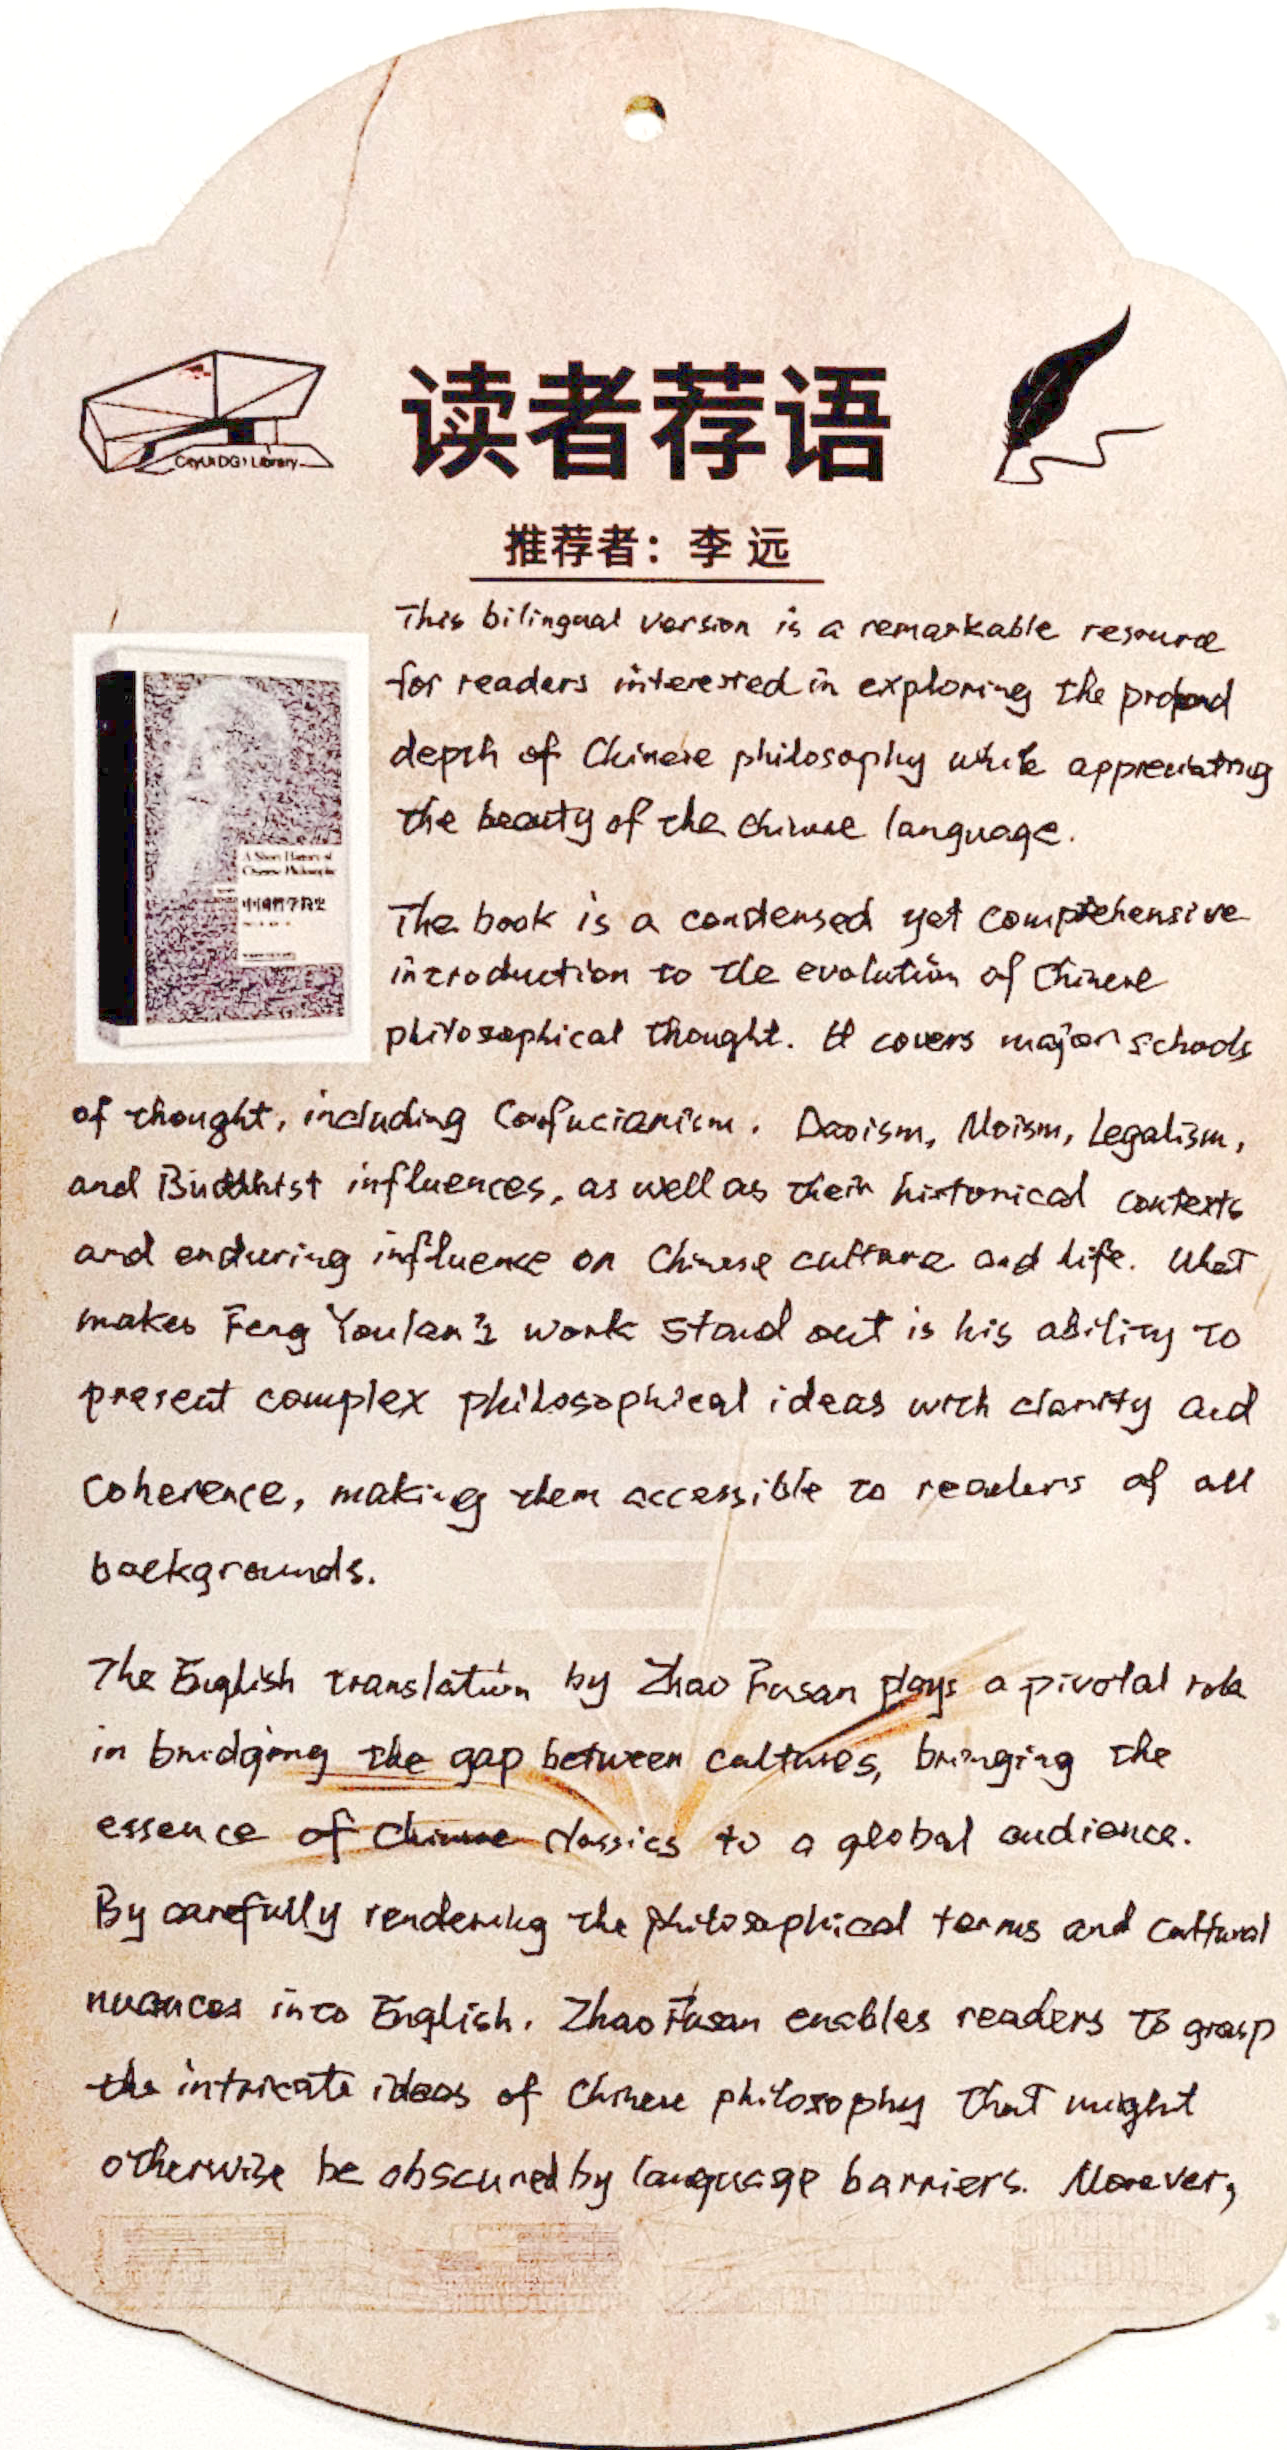 CityU(DG) Library
读者荐语
推荐者：李 远
This bilingual version is a remarkable resource
for readers interested in exploring the profound
depth of Chinese philosophy while appreciating
the beauty of the Chinese language.
A Short History of
Chinese Philosophy
中国哲学简史
The book is a condensed yet comprehensive
introduction to the evolution of Chinese
philosophical thought. It covers major schools
of thought, including Confucianism. Daoism, Moism, Legalism,
and Buddhist influences, as well as their historical contexts
and enduring influence on Chinese culture and life. What
makes Feng Youlan's work stand out is his ability to
present complex philosophical ideas with clarity and
coherence, making them accessible to readers of all
backgrounds.
The English translation by Zhao Fusan plays a pivotal role
in bridging the gap between cultures, bringing the
essence of Chinese classics to a global audience.
By carefully rendering the philosophical terms and cultural
nuances into English. Zhao Fusan enables readers to grasp
the intricate ideas of Chinese philosophy that might
otherwise be obscured by language barriers. Morever,